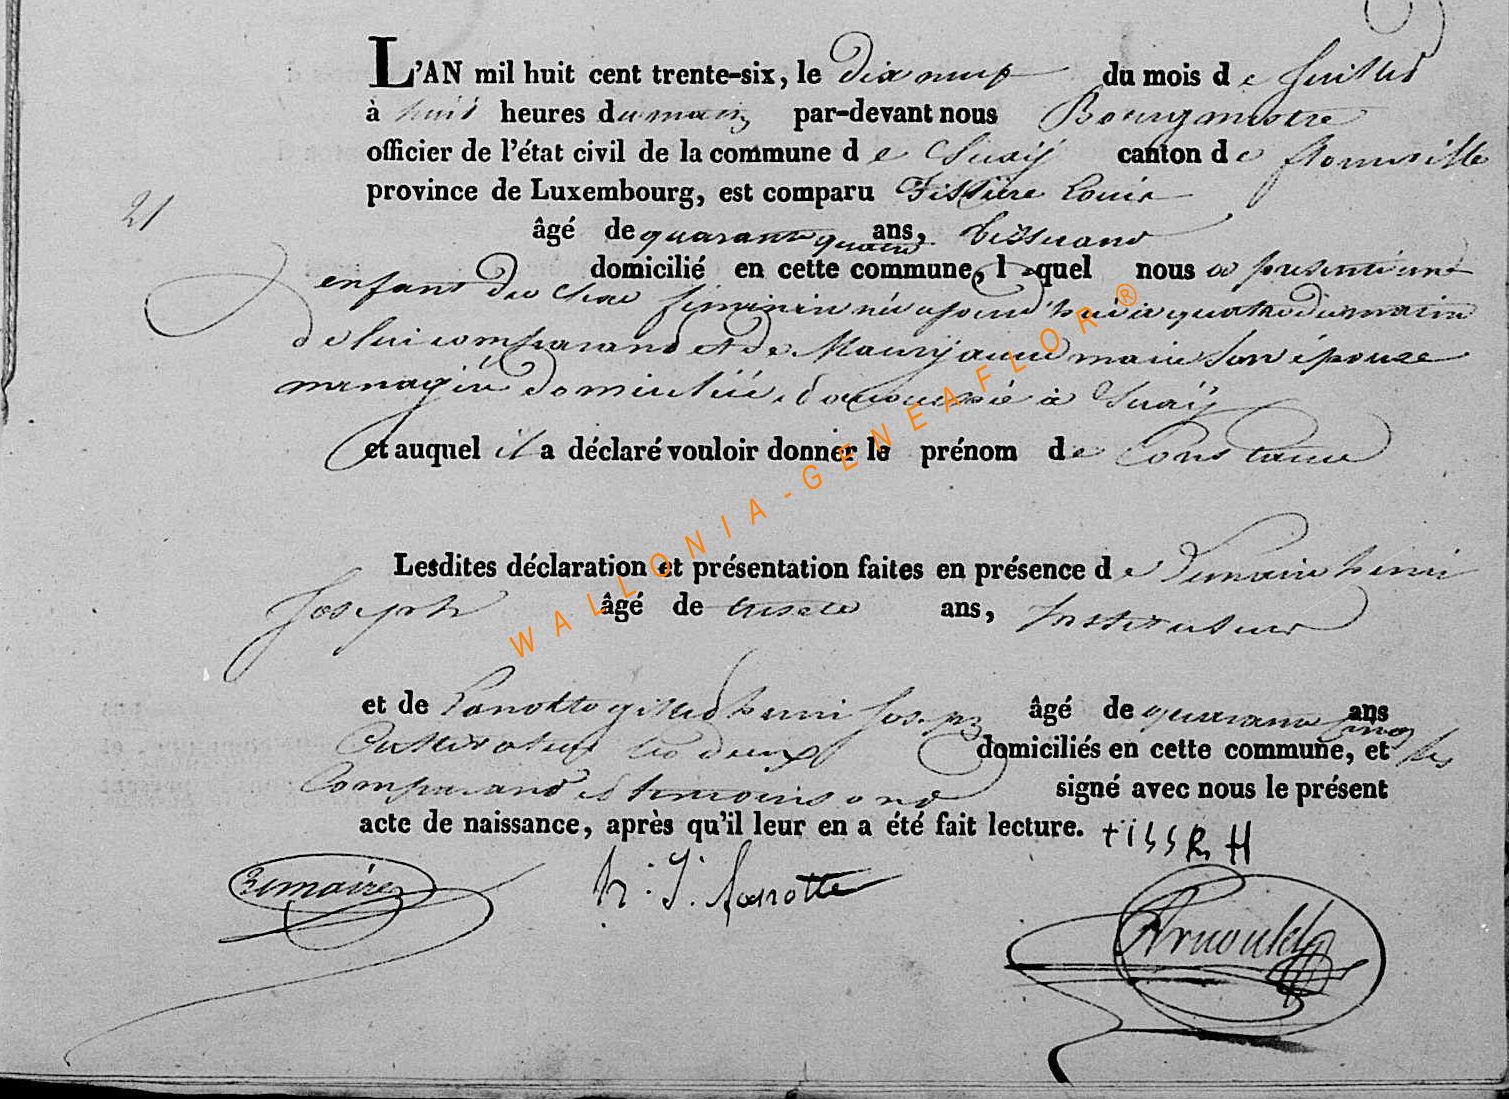 L'AN mil huit cent trente-six, le dix neuf du mois de juillet
à huit heures du matin par-devant nous Bourgmestre
officier de l'état civil de la commune de Suxÿ canton de florenville
province de Luxembourg, est comparu Louis
21
âgé de quarante quatre ans, tisserand
domicilié en cette commune, lequel nous a presenté un
enfant du sexe feminin né aujourd'hui à quatre du matin
de lui comparant et de marie son épouze
menagère domiciliée à Suxÿ
et auquel il a déclaré vouloir donner le prénom de Constance
Lesdites déclaration et présentation faites en présence de henri
Joseph âgé de ans, Instituteur
et de henri Joseph âgé de quarante cinq ans
Cultivateur les deux domiciliés en cette commune, et les
Comparant et temoins ont signé avec nous le présent
acte de naissance, après qu'il leur en a été fait lecture.
h. J. Lanotte
Arnould
WALLONIA-GENEAFLOR®